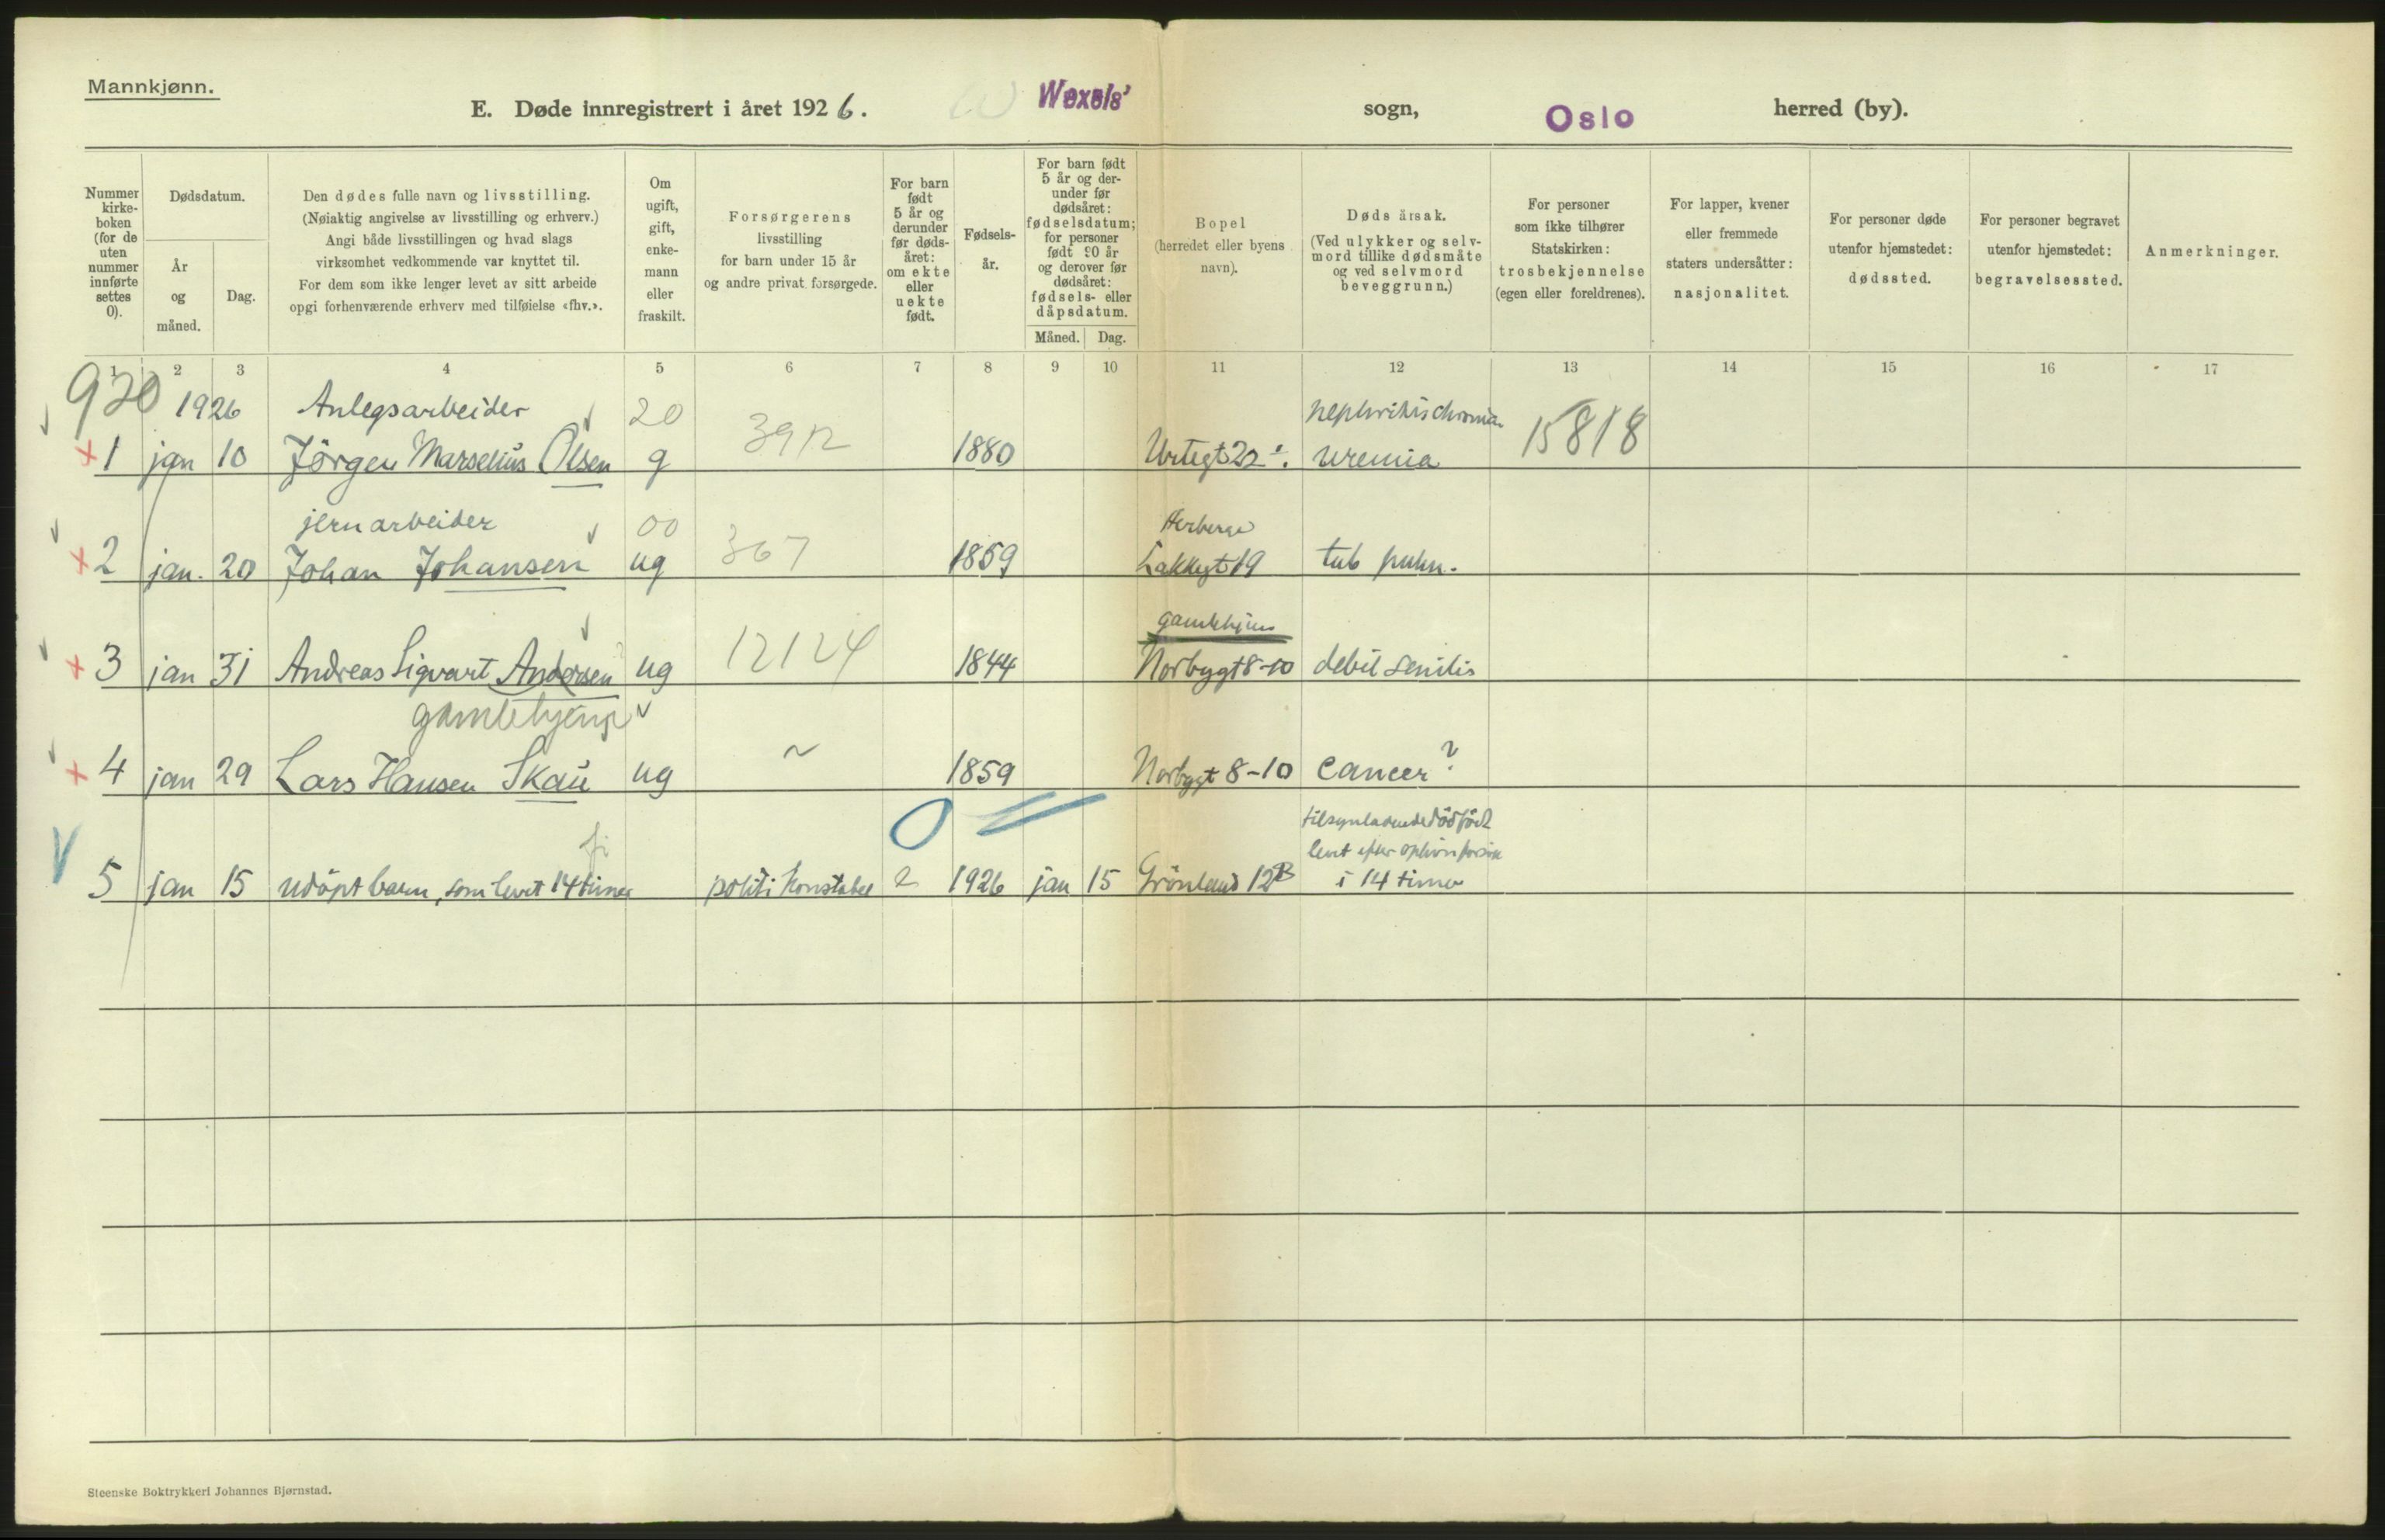 Mannkjønn.
E. Døde innregistrert i året 1926. Wexels' sogn, Oslo herred (by).
Nummer
kirke-
boken
(for de
uten
nummer
innførte
settes
0).
Dødsdatum.
År
og
måned.
Dag.
Den dødes fulle navn og livsstilling.
(Nøiaktig angivelse av livsstilling og erhverv.)
Angi både livsstillingen og hvad slags
virksomhet vedkommende var knyttet til.
For dem som ikke lenger levet av sitt arbeide
opgi forhenværende erhverv med tilføielse «fhv.».
Om
ugift,
gift,
enke-
mann
eller
fraskilt.
Forsørgerens
livsstilling
for barn under 15 år
og andre privat forsørgede.
For barn
født
5 år og
derunder
før døds-
året:
om ekte
eller
uekte
født.
Fødsels-
år.
For barn født
5 år og der-
under før
dødsåret:
fødselsdatum;
for personer
født 90 år
og derover før
dødsåret:
fødsels- eller
dåpsdatum.
Måned. Dag.
Bopel
(herredet eller byens
navn).
Døds årsak.
(Ved ulykker og selv-
mord tillike dødsmåte
og ved selvmord
beveggrunn.)
For personer
som ikke tilhører
Statskirken:
trosbekjennelse
(egen eller foreldrenes).
For lapper, kvener
eller fremmede
staters undersåtter:
nasjonalitet.
For personer døde
utenfor hjemstedet:
dødssted.
For personer begravet
utenfor hjemstedet:
begravelsessted.
Anmerkninger.
1 2 3 4 5 6 7 8 9 10 11 12 13 14 15 16 17
920 1926 Anlegsarbeider 20 3912 nephritis chronica 15818
1 jan 10 Jörgen Marselius Olsen g 1880 Urtegt 22 uremia
jernarbeider 00 367 Herberge
2 jan. 20 Johan Johansen ug 1859 Lakkegt 19 tub pulm.
12124 gamlehjem
3 jan 31 Andreas Sigvart Andersen ug 1844 Norbygt 8-10 debil senilis
gamlehjem
4 jan 29 Lars Hansen Skau ug ~ 1859 Norbygt 8-10 cancer?
0 tilsynladende dödfödt
levet efter
5 jan 15 udöpt barn, som levet 14 timer politi konstabel 1926 jan 15 Grönland 12B i 14 timer
Steenske Boktrykkeri Johannes Bjørnstad.